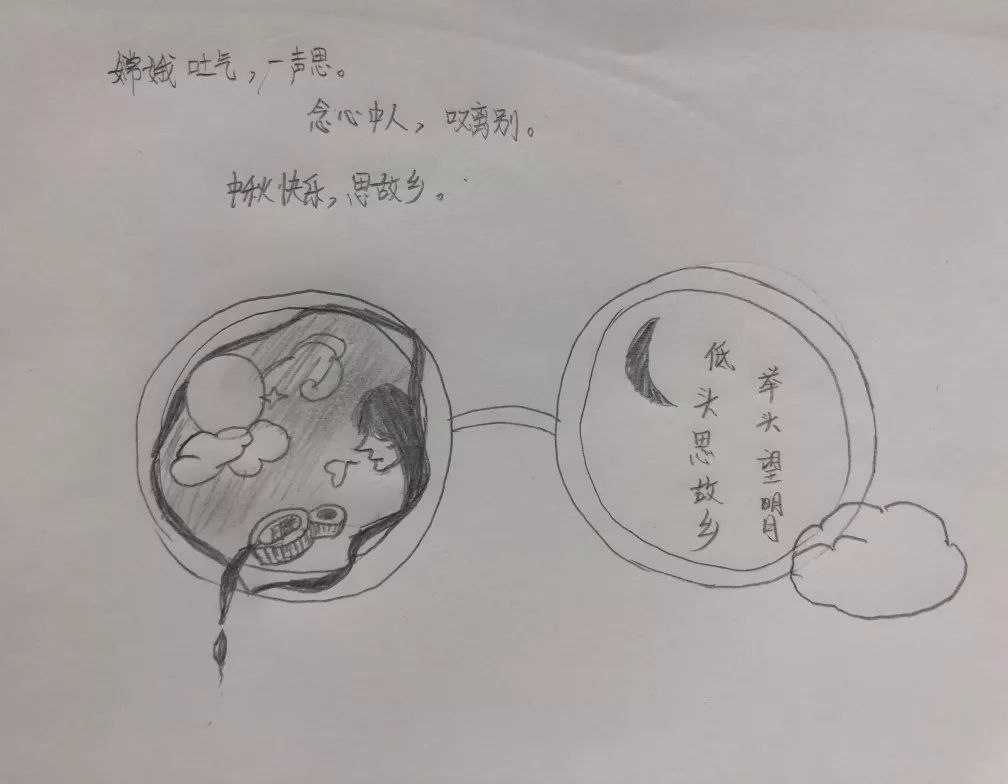 嫦娥吐气，一声思。
念心中人，叹离别。
中秋快乐，思故乡。
举头望明月
低头思故乡